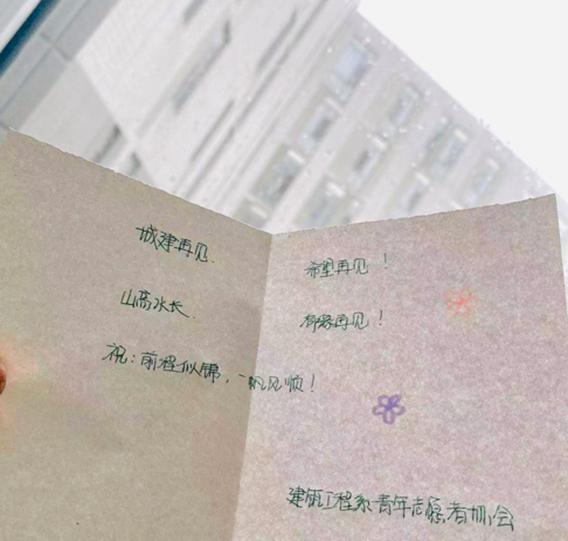 城建再见.
山高水长.
祝:前程似锦,一帆风顺!
希望再见!
有缘再见!
建筑工程系青年志愿者协会